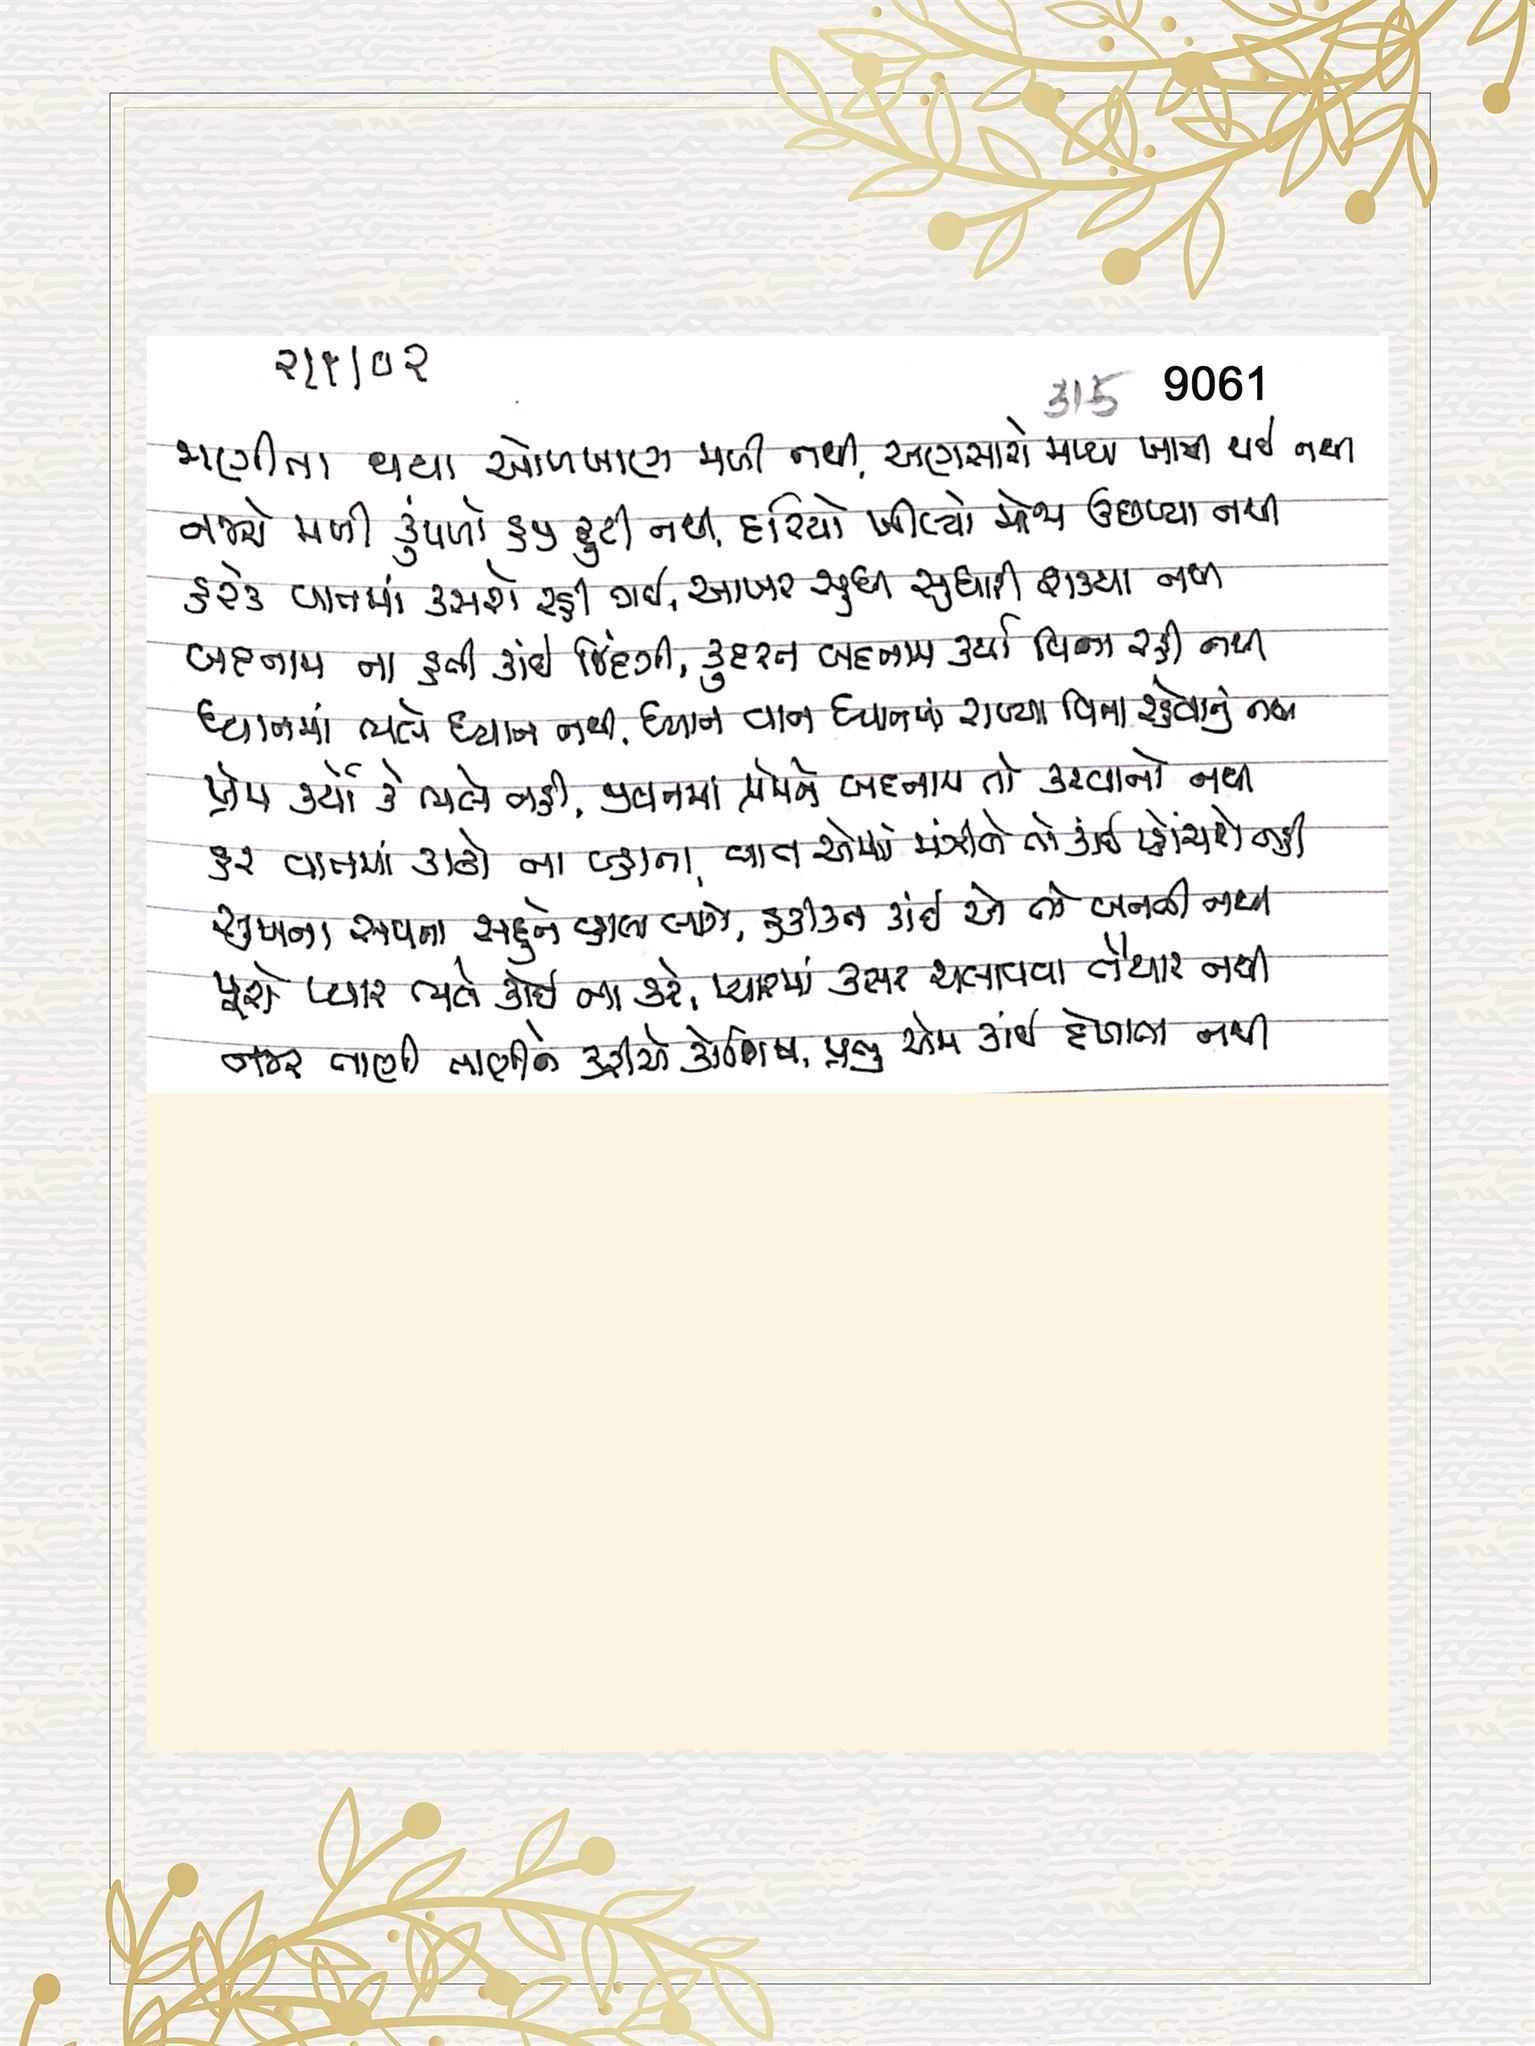 ૨/૧/૦૨
315 9061
જાણીતા થયા ઓળખાણ મળી નથી, અણસારો મળ્યા ખાત્રી થઈ નથી
નજરો મળી કુંપળો હજુ ફુટી નથી, દરિયો ખીલ્યો મોજા ઉછળ્યા નથી
હરેક વાતમાં કસરો રહી ગઈ, આખર સુધી સુધારી શક્યા નથી
બદનામ ના હતી કાંઈ જિંદગી, કુદરત બદનામ કર્યા વિના રહી નથી
ધ્યાનમાં ભલે ધ્યાન નથી, ધ્યાન વાત ધ્યાનમાં રાખ્યા વિના રહેવાનું નથી
પ્રેમ કર્યો કે ભલે નહીં, જીવનમાં પ્રેમને બદનામ તો કરવાનો નથી
હર વાતમાં કાઢો ના બહાના, વાત એમાં મંઝીલે તો કાંઈ પ્હોંચશે નહીં
સુખના સપના સહુને વ્હાલા લાગે, હકીકત કાંઈ એ તો બનતી નથી
પૂરો પ્યાર ભલે કોઈ ના કરે, પ્યારમાં કસર ચલાવવા તૈયાર નથી
નજર તાણી તાણીને કરીએ કોશિષ, પ્રભુ એમ કાંઈ દેખાતા નથી